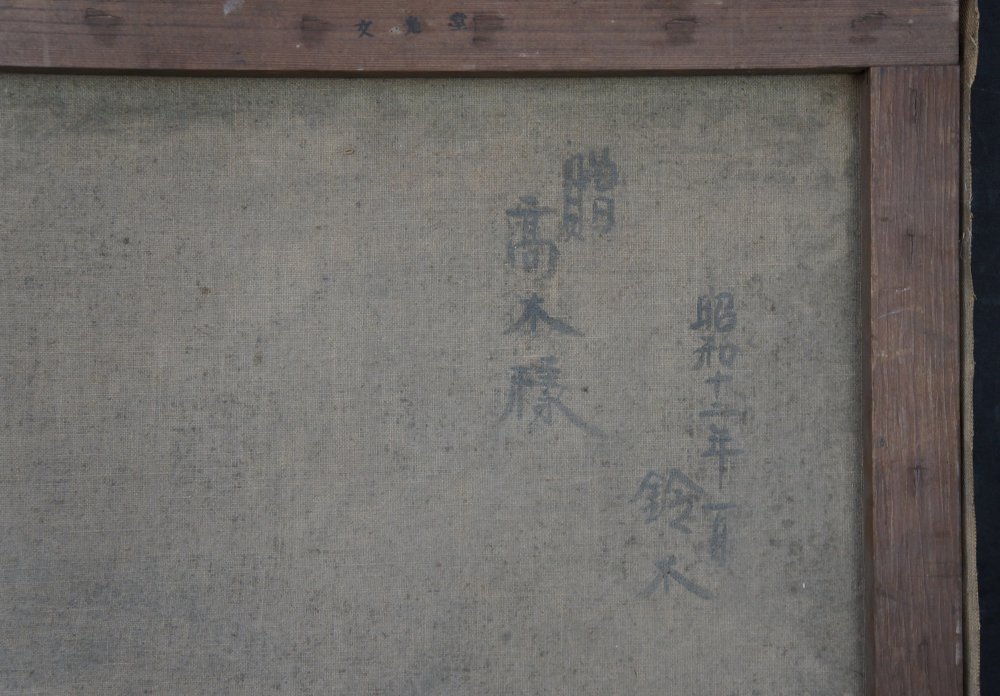 文光堂
昭和十二年一月
鈴木
贈
高木様